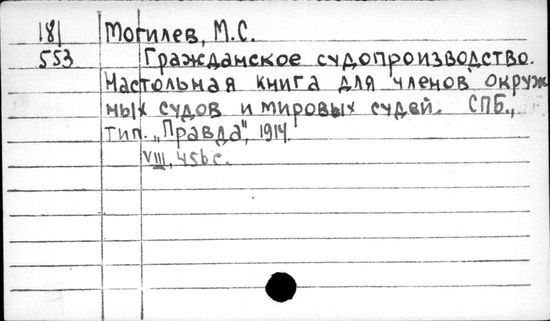 181 Могилев, М.С.
553 Гражданское судопроизводство.
Настольная книга для членов окруж
ных судов и мировых судей. СПБ.,
тип. „Правда", 1914.
VIII, 456 с.